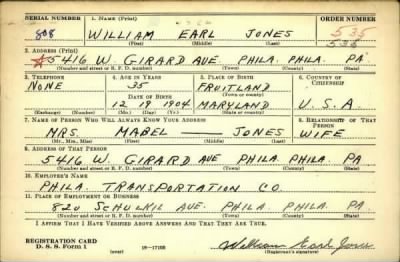 SERIAL NUMBER 1. NAME (Print) ORDER NUMBER
808 WILLIAM EARL JONES 535
(First) (Middle) (Last) 535
2. ADDRESS (Print)
5416 W. GIRARD AVE. PHILA. PHILA. PA.
(Number and street or R. F. D. number) (Town) (County) (State)
3. TELEPHONE 4. AGE IN YEARS 5. PLACE OF BIRTH 6. COUNTRY OF CITIZENSHIP
NONE 35 FRUITLAND
DATE OF BIRTH (Town or county)
12 19 1904 MARYLAND U.S.A
(Exchange) (Number) (Mo.) (Day) (Yr.) (State or country)
7. NAME OF PERSON WHO WILL ALWAYS KNOW YOUR ADDRESS 8. RELATIONSHIP OF THAT PERSON
MRS. MABEL — JONES WIFE
(Mr., Mrs., Miss) (First) (Middle) (Last)
9. ADDRESS OF THAT PERSON
5416 W. GIRARD AVE PHILA. PHILA. PA
(Number and street or R. F. D. number) (Town) (County) (State)
10. EMPLOYER'S NAME
PHILA. TRANSPORTATION CO.
11. PLACE OF EMPLOYMENT OR BUSINESS
820 SCHULKIL AVE. PHILA PHILA. PA.
(Number and street or R. F. D. number) (Town) (County) (State)
I AFFIRM THAT I HAVE VERIFIED ABOVE ANSWERS AND THAT THEY ARE TRUE.
REGISTRATION CARD
D. S. S. Form 1 (over) 16—17105 William Earl Jones
(Registrant's signature)